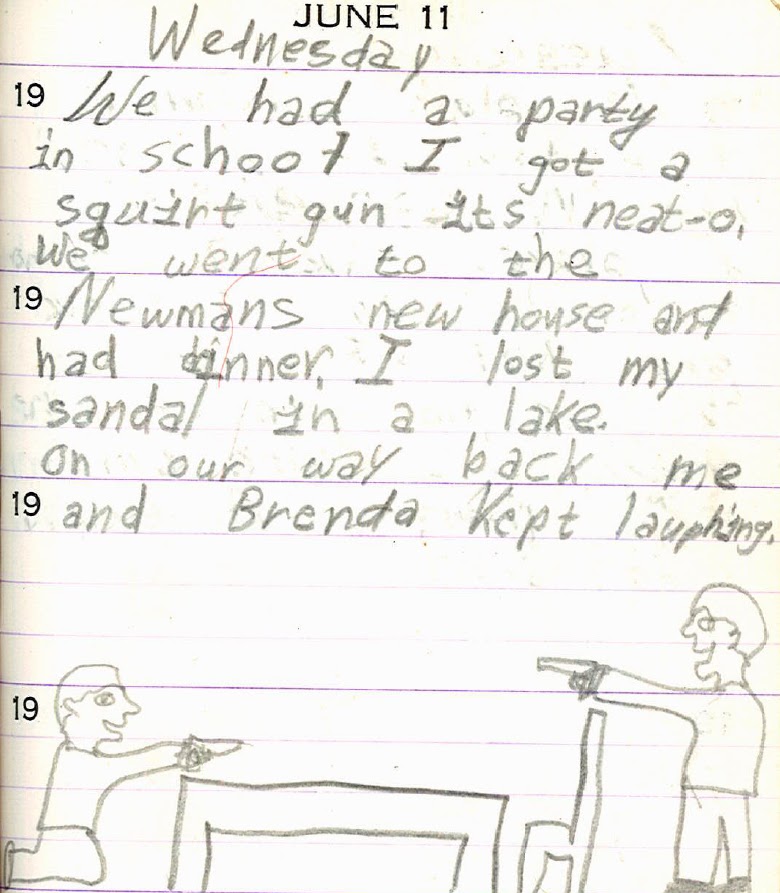 JUNE 11
Wednesday
19 We had a party
in school I got a
squirt gun its neat-o.
We went to the
19 Newmans new house and
had dinner, I lost my
sandal in a lake.
On our way back me
19 and Brenda Kept lauphing.
19